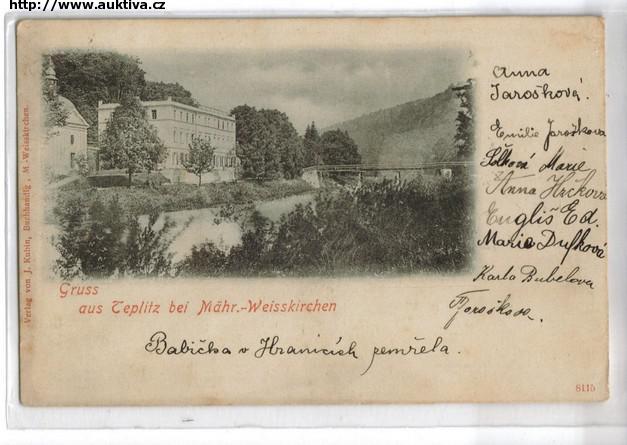 http://www.auktiva.cz
Verlag von J. Kubin, Buchhandlg., M.-Weisskirchen.
Anna
Jarošková.
Emilie Jarošková
Marie
Anna
Engliš Ed.
Marie Dufková
Karla Bubelova
Gruss
aus Teplitz bei Mähr.-Weisskirchen
Babička v Hranicích zemřela.
8115